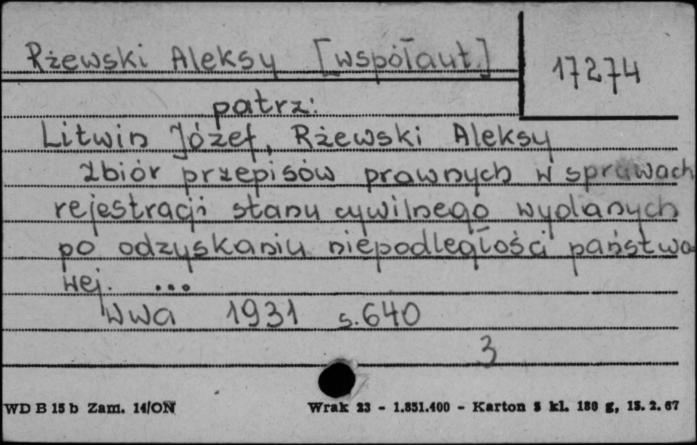 Rżewski Aleksy [współaut.]
17274
patrz:
Litwin Józef, Rżewski Aleksy
Zbiór przepisów prawnych w sprawach
rejestracji stanu cywilnego wydanych
po odzyskaniu niepodległości państwo
wej. ...
Wwa 1931 s.640
3
WD B 15 b Zam. 14/ON Wrak 23 - 1.851.400 - Karton 5 kl. 180 g, 15. 2. 67